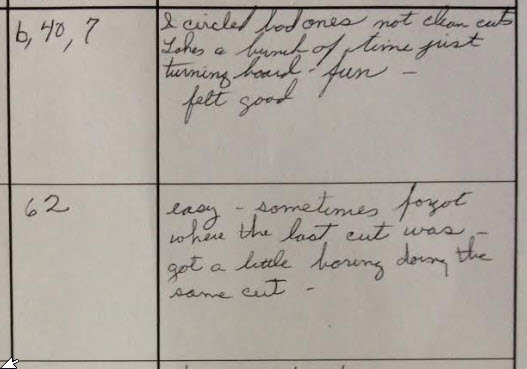 6, 40, 7
I circled bad ones not clean cuts
Takes a bunch of time just
turning board - fun -
felt good
62
easy - sometimes forgot
where the last cut was -
got a little boring doing the
same cut -